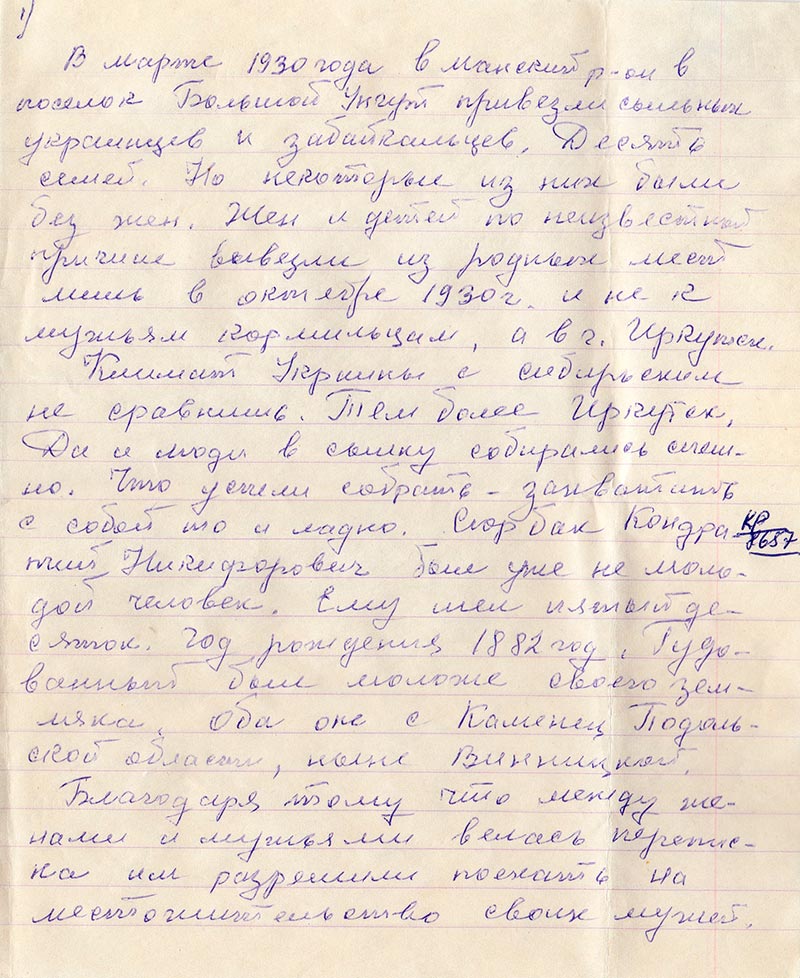 1)
В марте 1930 года в Манский р-он в
поселок Большой Унгут привезли сыльных
украинцев и забайкальцев. Десять
семей. Но некоторые из них были
без жен. Жен и детей по неизвестной
причине вывезли из родных мест
лишь в октябре 1930 г. и не к
мужьям кормильцам, а в г. Иркутск.
Климат Украины с сибирьским
не сравнишь. Тем более Иркутск.
Да и люди в сылку собирались спеш-
но. Что успели собрать - захватить
с собой то и ладно. Скорбак Кондра-
тий Никифорович был уже не моло-
дой человек. Ему шел пятый де-
сяток. Год рождения 1882 год. Гудо-
ванный был моложе своего зем-
ляка. Оба они с Каменец Подоль-
ской области, ныне Винницкой.
Благодаря тому что между же-
нами и мужьями велась перепис-
ка им разрешили поехать на
местожительство своих мужей.
КР
8657